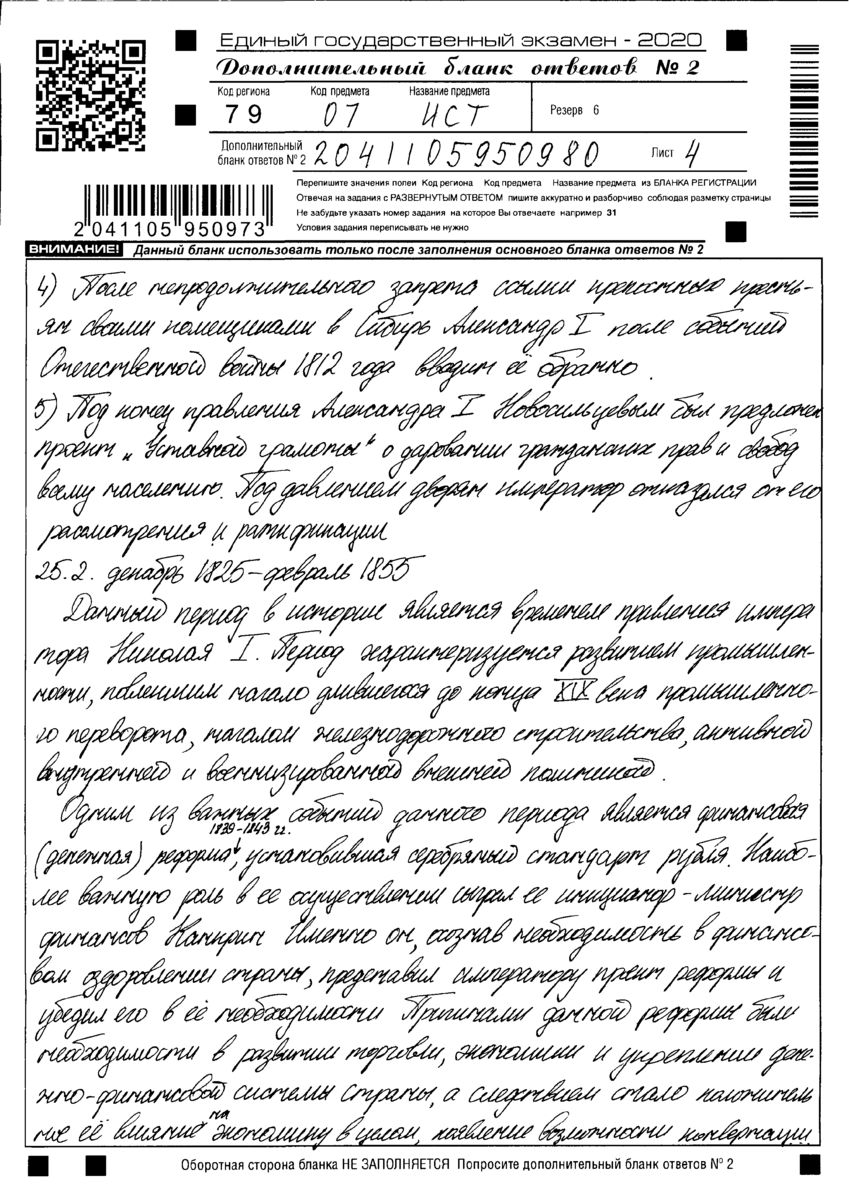 Единый государственный экзамен - 2020
Дополнительный бланк ответов № 2
Код региона Код предмета Название предмета
79 07 ИСТ Резерв 6
Дополнительный бланк ответов № 2 2041105950980 Лист 4
Перепишите значения полей Код региона Код предмета Название предмета из БЛАНКА РЕГИСТРАЦИИ
Отвечая на задания с РАЗВЕРНУТЫМ ОТВЕТОМ пишите аккуратно и разборчиво соблюдая разметку страницы
Не забудьте указать номер задания на которое Вы отвечаете например 31
Условия задания переписывать не нужно
2 041105 950973
ВНИМАНИЕ! Данный бланк использовать только после заполнения основного бланка ответов № 2
4) После непродолжительного запрета ссылки крепостных кресть-
ян своими помещиками в Сибирь Александр I после событий
Отечественной войны 1812 года вводит её обратно.
5) Под конец правления Александра I Новосильцевым был предложен
проект "Уставной грамоты" о даровании гражданских прав и свобод
всему населению. Под давлением дворян император отказался от его
рассмотрения и ратификации
25.2. декабрь 1825 – февраль 1855
Данный период в истории является временем правления импера
тора Николая I. Период характеризуется развитием промышлен-
ности, начало длившегося до конца XIX века промышленно-
го переворота, началом железнодорожного строительства, активной
внутренней и военнизированной внешней политикой.
Одним из важных событий данного периода является финансовая
(денежная) реформа 1839-1843 гг., установившая серебряный стандарт рубля. Наибо-
лее важную роль в ее осуществлении сыграл ее инициатор - министр
финансов Канкрин Именно он, осознав необходимость в финансо-
вом оздоровлении страны, представил императору проект реформы и
убедил его в её необходимости Причинами данной реформы были
необходимости в развитии торговли, экономики и укреплении дене-
жно-финансовой системы страны, а следствием стало положитель
ное её влияние на экономику в целом, появление возможности конвертации
Оборотная сторона бланка НЕ ЗАПОЛНЯЕТСЯ Попросите дополнительный бланк ответов № 2